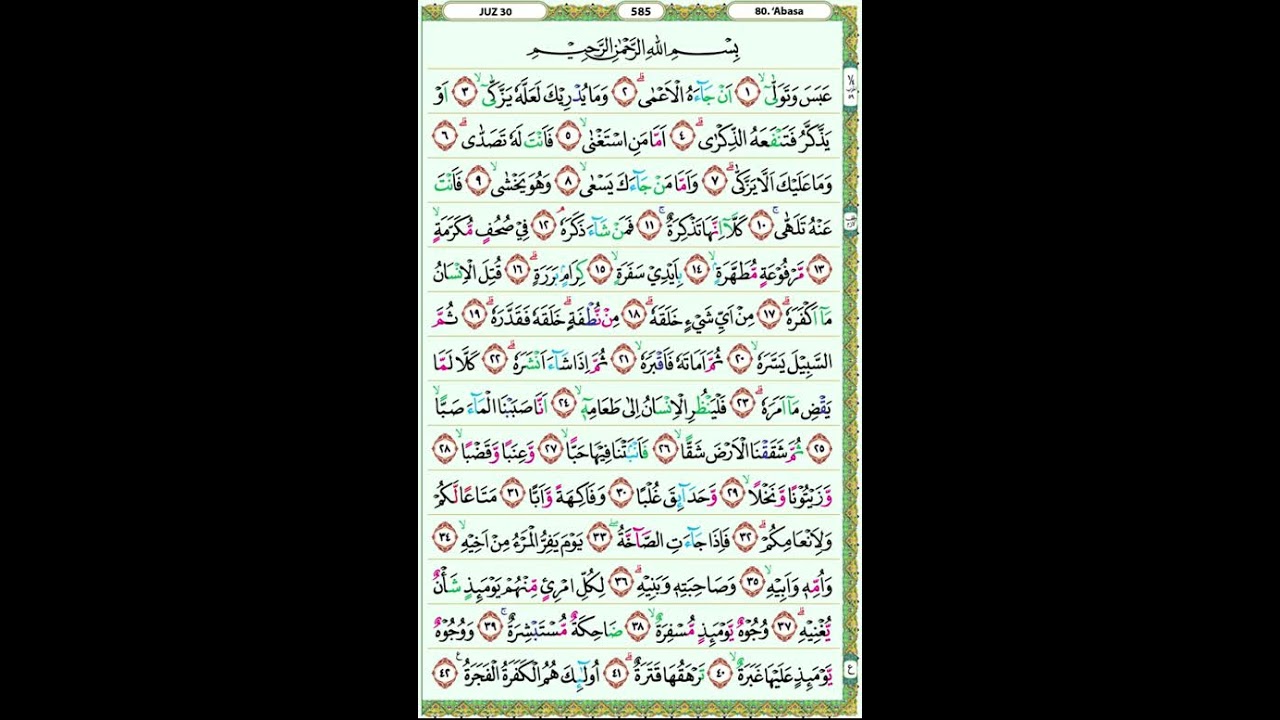 JUZ 30
585
80. ‘Abasa
بِسْمِ اللّٰهِ الرَّحْمٰنِ الرَّحِيْمِ
عَبَسَ وَتَوَلّٰىٓۙ ١ اَنْ جَاۤءَهُ الْاَعْمٰىۗ ٢ وَمَا يُدْرِيْكَ لَعَلَّهٗ يَزَّكّٰىٓۙ ٣ اَوْ
يَذَّكَّرُ فَتَنْفَعَهُ الذِّكْرٰىۗ ٤ اَمَّا مَنِ اسْتَغْنٰىۙ ٥ فَاَنْتَ لَهٗ تَصَدّٰىۗ ٦
وَمَا عَلَيْكَ اَلَّا يَزَّكّٰىۗ ٧ وَاَمَّا مَنْ جَاۤءَكَ يَسْعٰىۙ ٨ وَهُوَ يَخْشٰىۙ ٩ فَاَنْتَ
عَنْهُ تَلَهّٰىۚ ١٠ كَلَّآ اِنَّهَا تَذْكِرَةٌۚ ١١ فَمَنْ شَاۤءَ ذَكَرَهٗۘ ١٢ فِيْ صُحُفٍ مُّكَرَّمَةٍۙ
١٣ مَّرْفُوْعَةٍ مُّطَهَّرَةٍۙ ١٤ بِاَيْدِيْ سَفَرَةٍۙ ١٥ كِرَامٍ بَرَرَةٍۗ ١٦ قُتِلَ الْاِنْسَانُ
مَآ اَكْفَرَهٗۗ ١٧ مِنْ اَيِّ شَيْءٍ خَلَقَهٗۗ ١٨ مِنْ نُّطْفَةٍۗ خَلَقَهٗ فَقَدَّرَهٗۗ ١٩ ثُمَّ
السَّبِيْلَ يَسَّرَهٗۙ ٢٠ ثُمَّ اَمَاتَهٗ فَاَقْبَرَهٗۙ ٢١ ثُمَّ اِذَا شَاۤءَ اَنْشَرَهٗۗ ٢٢ كَلَّا لَمَّا
يَقْضِ مَآ اَمَرَهٗۗ ٢٣ فَلْيَنْظُرِ الْاِنْسَانُ اِلٰى طَعَامِهٖٓۙ ٢٤ اَنَّا صَبَبْنَا الْمَاۤءَ صَبًّاۙ
٢٥ ثُمَّ شَقَقْنَا الْاَرْضَ شَقًّاۙ ٢٦ فَاَنْۢبَتْنَا فِيْهَا حَبًّاۙ ٢٧ وَّعِنَبًا وَّقَضْبًاۙ ٢٨
وَّزَيْتُوْنًا وَّنَخْلًاۙ ٢٩ وَّحَدَاۤىِٕقَ غُلْبًا ٣٠ وَفَاكِهَةً وَّاَبًّا ٣١ مَتَاعًا لَّكُمْ
وَلِاَنْعَامِكُمْۗ ٣٢ فَاِذَا جَاۤءَتِ الصَّاۤخَّةُۖ ٣٣ يَوْمَ يَفِرُّ الْمَرْءُ مِنْ اَخِيْهِۙ ٣٤
وَاُمِّهٖ وَاَبِيْهِۙ ٣٥ وَصَاحِبَتِهٖ وَبَنِيْهِۗ ٣٦ لِكُلِّ امْرِئٍ مِّنْهُمْ يَوْمَىِٕذٍ شَأْنٌ
يُّغْنِيْهِۗ ٣٧ وُجُوْهٌ يَّوْمَىِٕذٍ مُّسْفِرَةٌۙ ٣٨ ضَاحِكَةٌ مُّسْتَبْشِرَةٌۚ ٣٩ وَوُجُوْهٌ
يَّوْمَىِٕذٍ عَلَيْهَا غَبَرَةٌۙ ٤٠ تَرْهَقُهَا قَتَرَةٌۗ ٤١ اُولٰۤىِٕكَ هُمُ الْكَفَرَةُ الْفَجَرَةُ ٤٢
ع